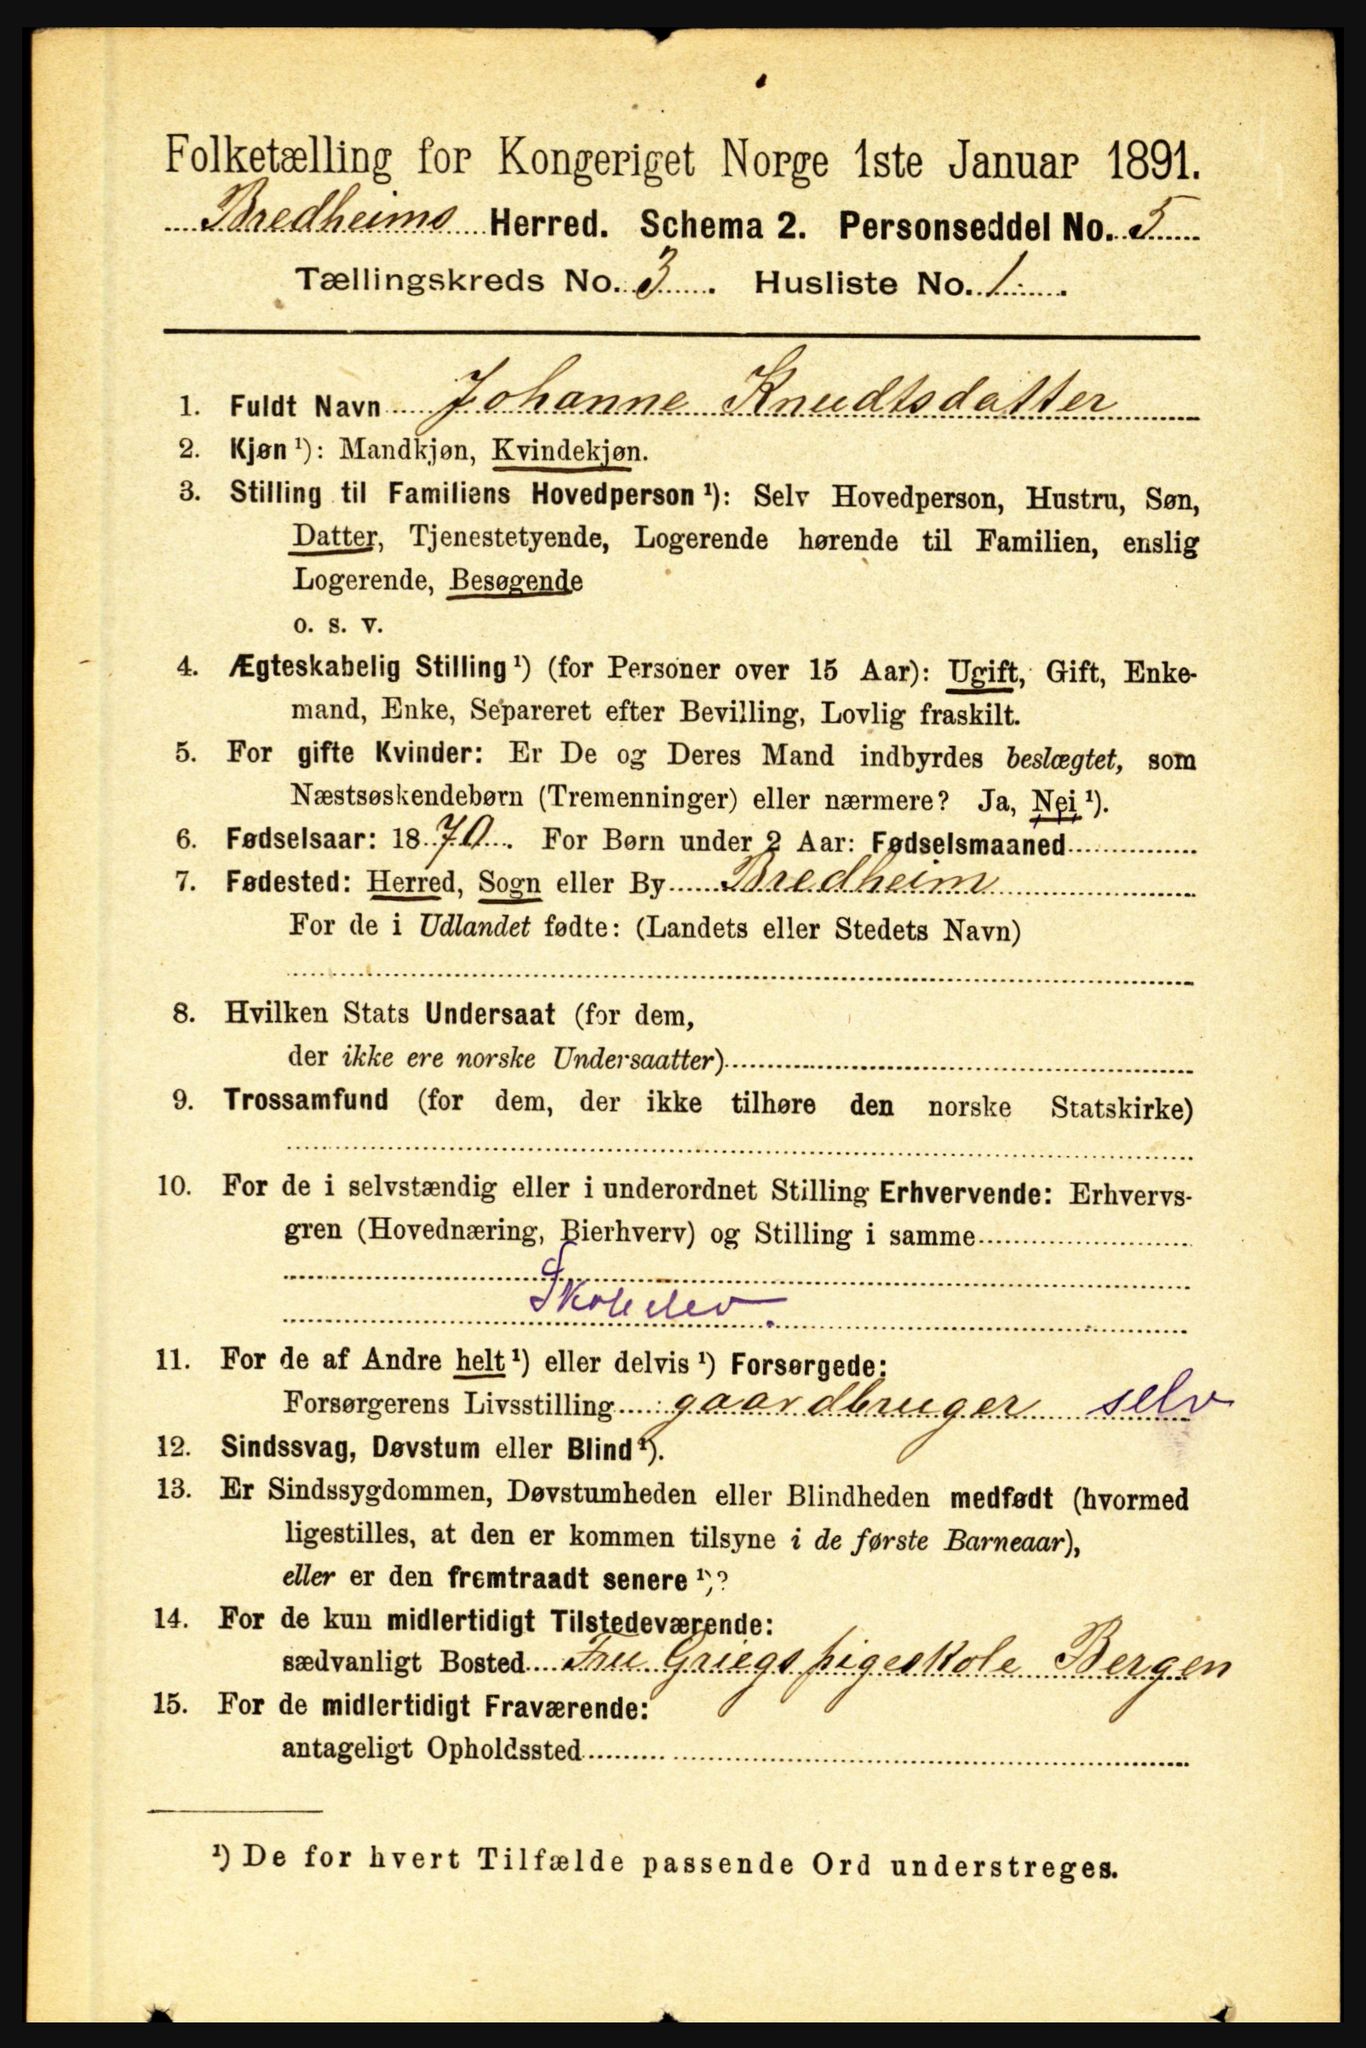 Folketælling for Kongeriget Norge 1ste Januar 1891.
Bredheims Herred. Schema 2. Personseddel No. 5
Tællingskreds No. 3. Husliste No. 1.
1. Fuldt Navn Johanne Knudtsdatter
2. Kjøn¹): Mandkjøn, Kvindekjøn.
3. Stilling til Familiens Hovedperson¹): Selv Hovedperson, Hustru, Søn,
Datter, Tjenestetyende, Logerende hørende til Familien, enslig
Logerende, Besøgende
o. s. v.
4. Ægteskabelig Stilling¹) (for Personer over 15 Aar): Ugift, Gift, Enke-
mand, Enke, Separeret efter Bevilling, Lovlig fraskilt.
5. For gifte Kvinder: Er De og Deres Mand indbyrdes beslægtet, som
Næstsøskendebørn (Tremenninger) eller nærmere? Ja, Nei¹).
6. Fødselsaar: 1870. For Børn under 2 Aar: Fødselsmaaned
7. Fødested: Herred, Sogn eller By Bredheim
For de i Udlandet fødte: (Landets eller Stedets Navn)
8. Hvilken Stats Undersaat (for dem,
der ikke ere norske Undersaatter)
9. Trossamfund (for dem, der ikke tilhøre den norske Statskirke)
10. For de i selvstændig eller i underordnet Stilling Erhvervende: Erhvervs-
gren (Hovednæring, Bierhverv) og Stilling i samme
Skoleelev.
11. For de af Andre helt¹) eller delvis¹) Forsørgede:
Forsørgerens Livsstilling gaardbruger selv
12. Sindssvag, Døvstum eller Blind¹).
13. Er Sindssygdommen, Døvstumheden eller Blindheden medfødt (hvormed
ligestilles, at den er kommen tilsyne i de første Barneaar),
eller er den fremtraadt senere¹)?
14. For de kun midlertidigt Tilstedeværende:
sædvanligt Bosted Fru Griegs pigeskole Bergen
15. For de midlertidigt Fraværende:
antageligt Opholdssted
¹) De for hvert Tilfælde passende Ord understreges.